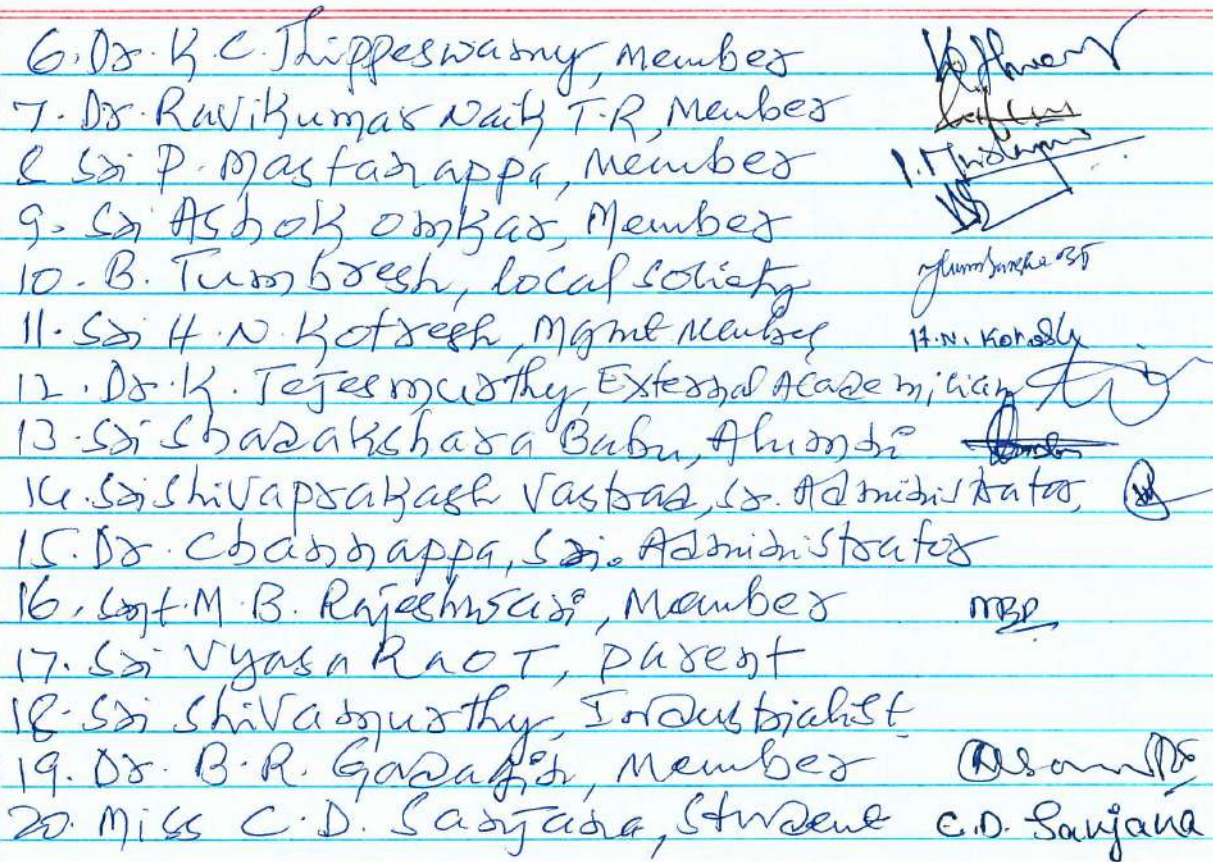 6. Dr. K.C. Thippeswamy, Member
7. Dr. RaviKumar Naik T.R, Member
8 Sri P. Mastanappa, Member
9. Sri Ashok Omkar, Member
10. B. Tumbresh, local Society
11. Sri H.N. Kotresh, Mgmt Member H.N. Kotresh
12. Dr. K. Tejesmurthy, External Academician
13. Sri Shadakshara Babu, Alumni
14. Sri Shivaprakash Vastrad, Sr. Administrator
15. Dr. Channappa, Sr. Administrator
16. Smt. M.B. Rajeshwari, Member MBR
17. Sri Vyasa Rao T, parent
18. Sri Shivamurthy, Industrialist
19. Dr. B.R. Gadagin, Member
20. Miss C.D. Sanjana, Student C.D. Sanjana